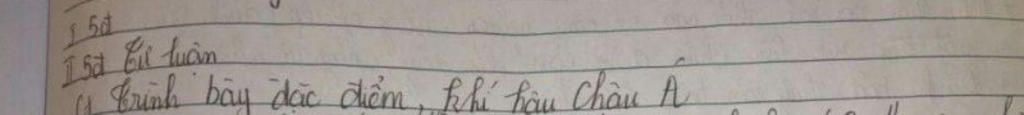 I 5đ
II 5đ Tự luận
C1 Trình bày đặc điểm, khí hậu Châu Á